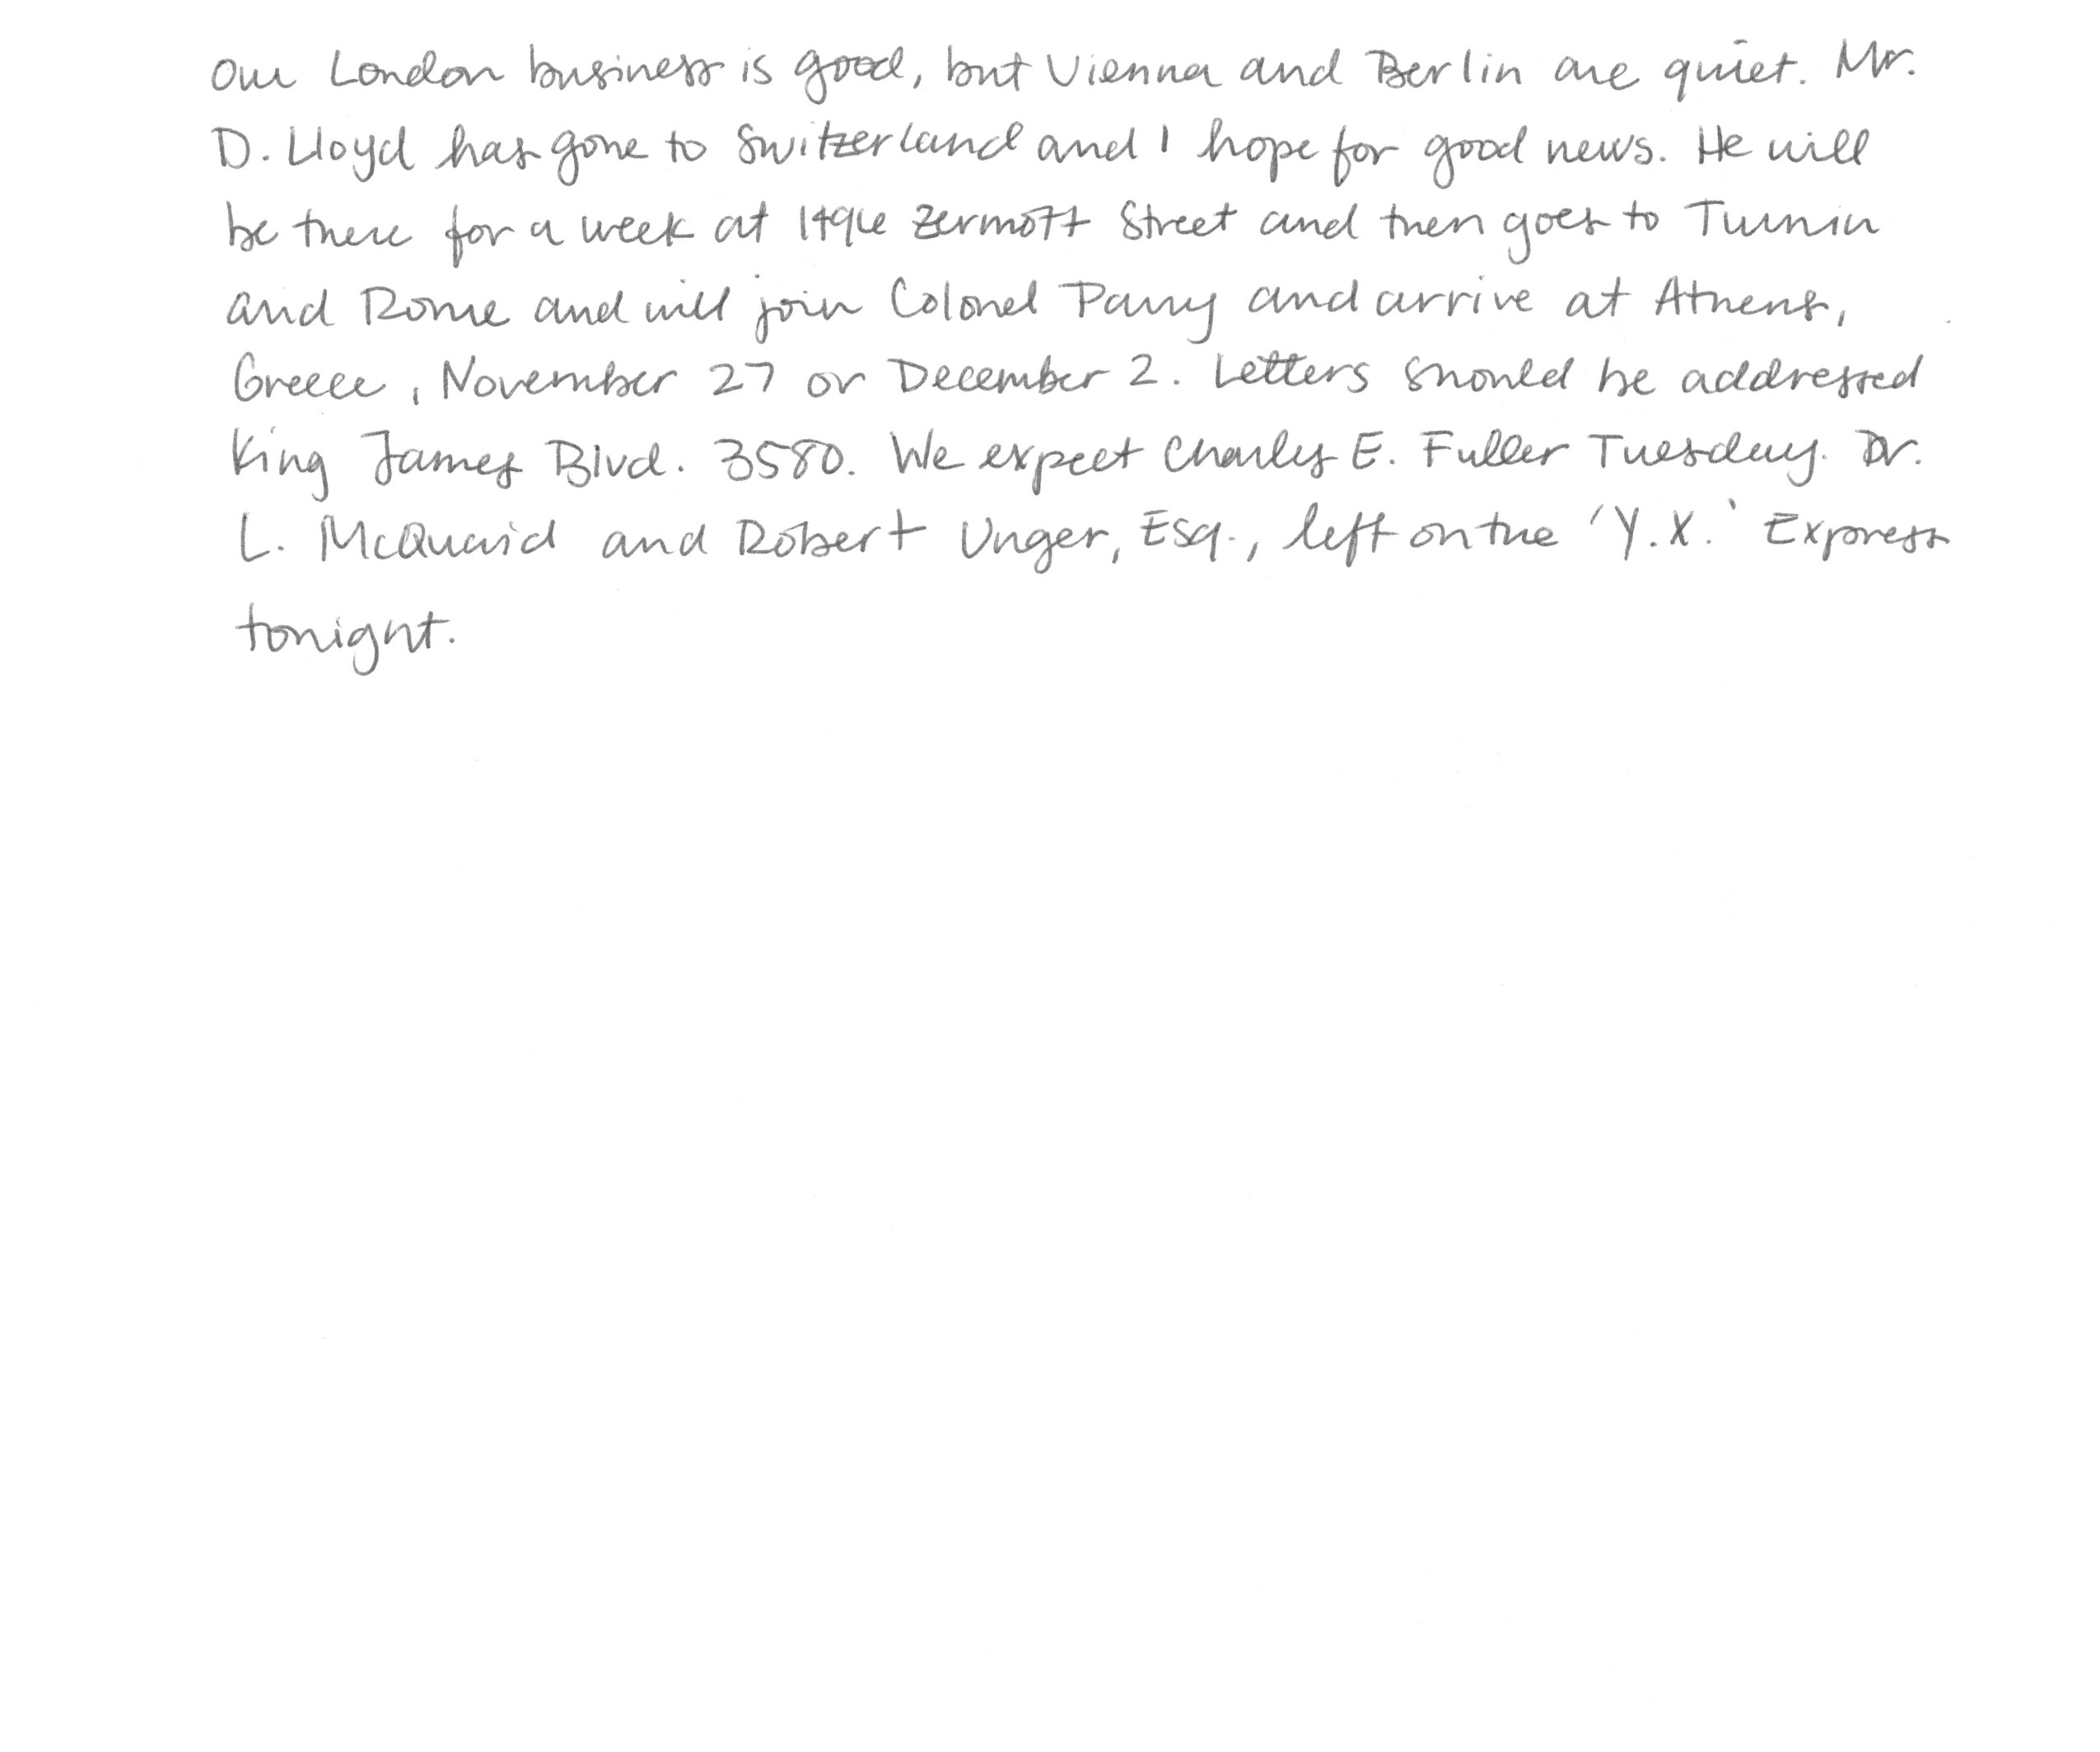 Our London business is good, but Vienna and Berlin are quiet. Mr.
D. Lloyd has gone to Switzerland and I hope for good news. He will
be there for a week at 1496 Zermott Street and then goes to Turin
and Rome and will join Colonel Parry and arrive at Athens,
Greece, November 27 or December 2. Letters should be addressed
King James Blvd. 3580. We expect Charles E. Fuller Tuesday. Dr.
L. McQuaid and Robert Unger, Esq., left on the 'Y.X.' Express
tonight.